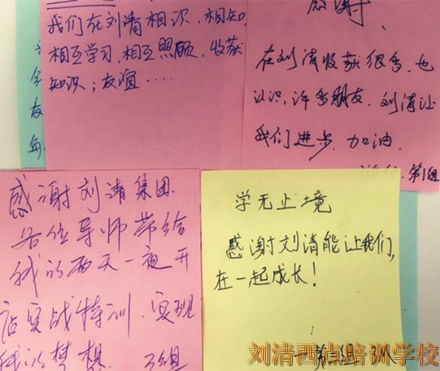 我们在刘清相识，相知，
相互学习，相互照顾，收获
知识；友谊....
感谢
在刘清收获很多，也
认识，许多朋友，刘清让
我们进步，加油，
第1组
感谢刘清集团
各位导师带给
我的两天一夜开
店实战特训，实现
我的梦想
学无止境
感谢刘清能让我们，
在一起成长！
刘清西点培训学校